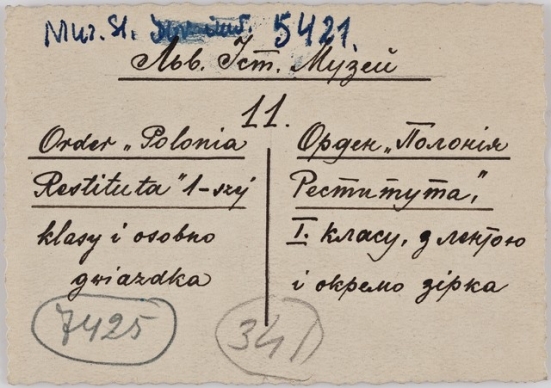 Mur. St. 5421.
Льв. Іст. Музей
11.
Order „Polonia
Restituta" 1-szej
klasy i osobno
gwiazdka
Орден „Полонія
Реститута,"
I. класу, з лентою
і окремо зірка
7425
341